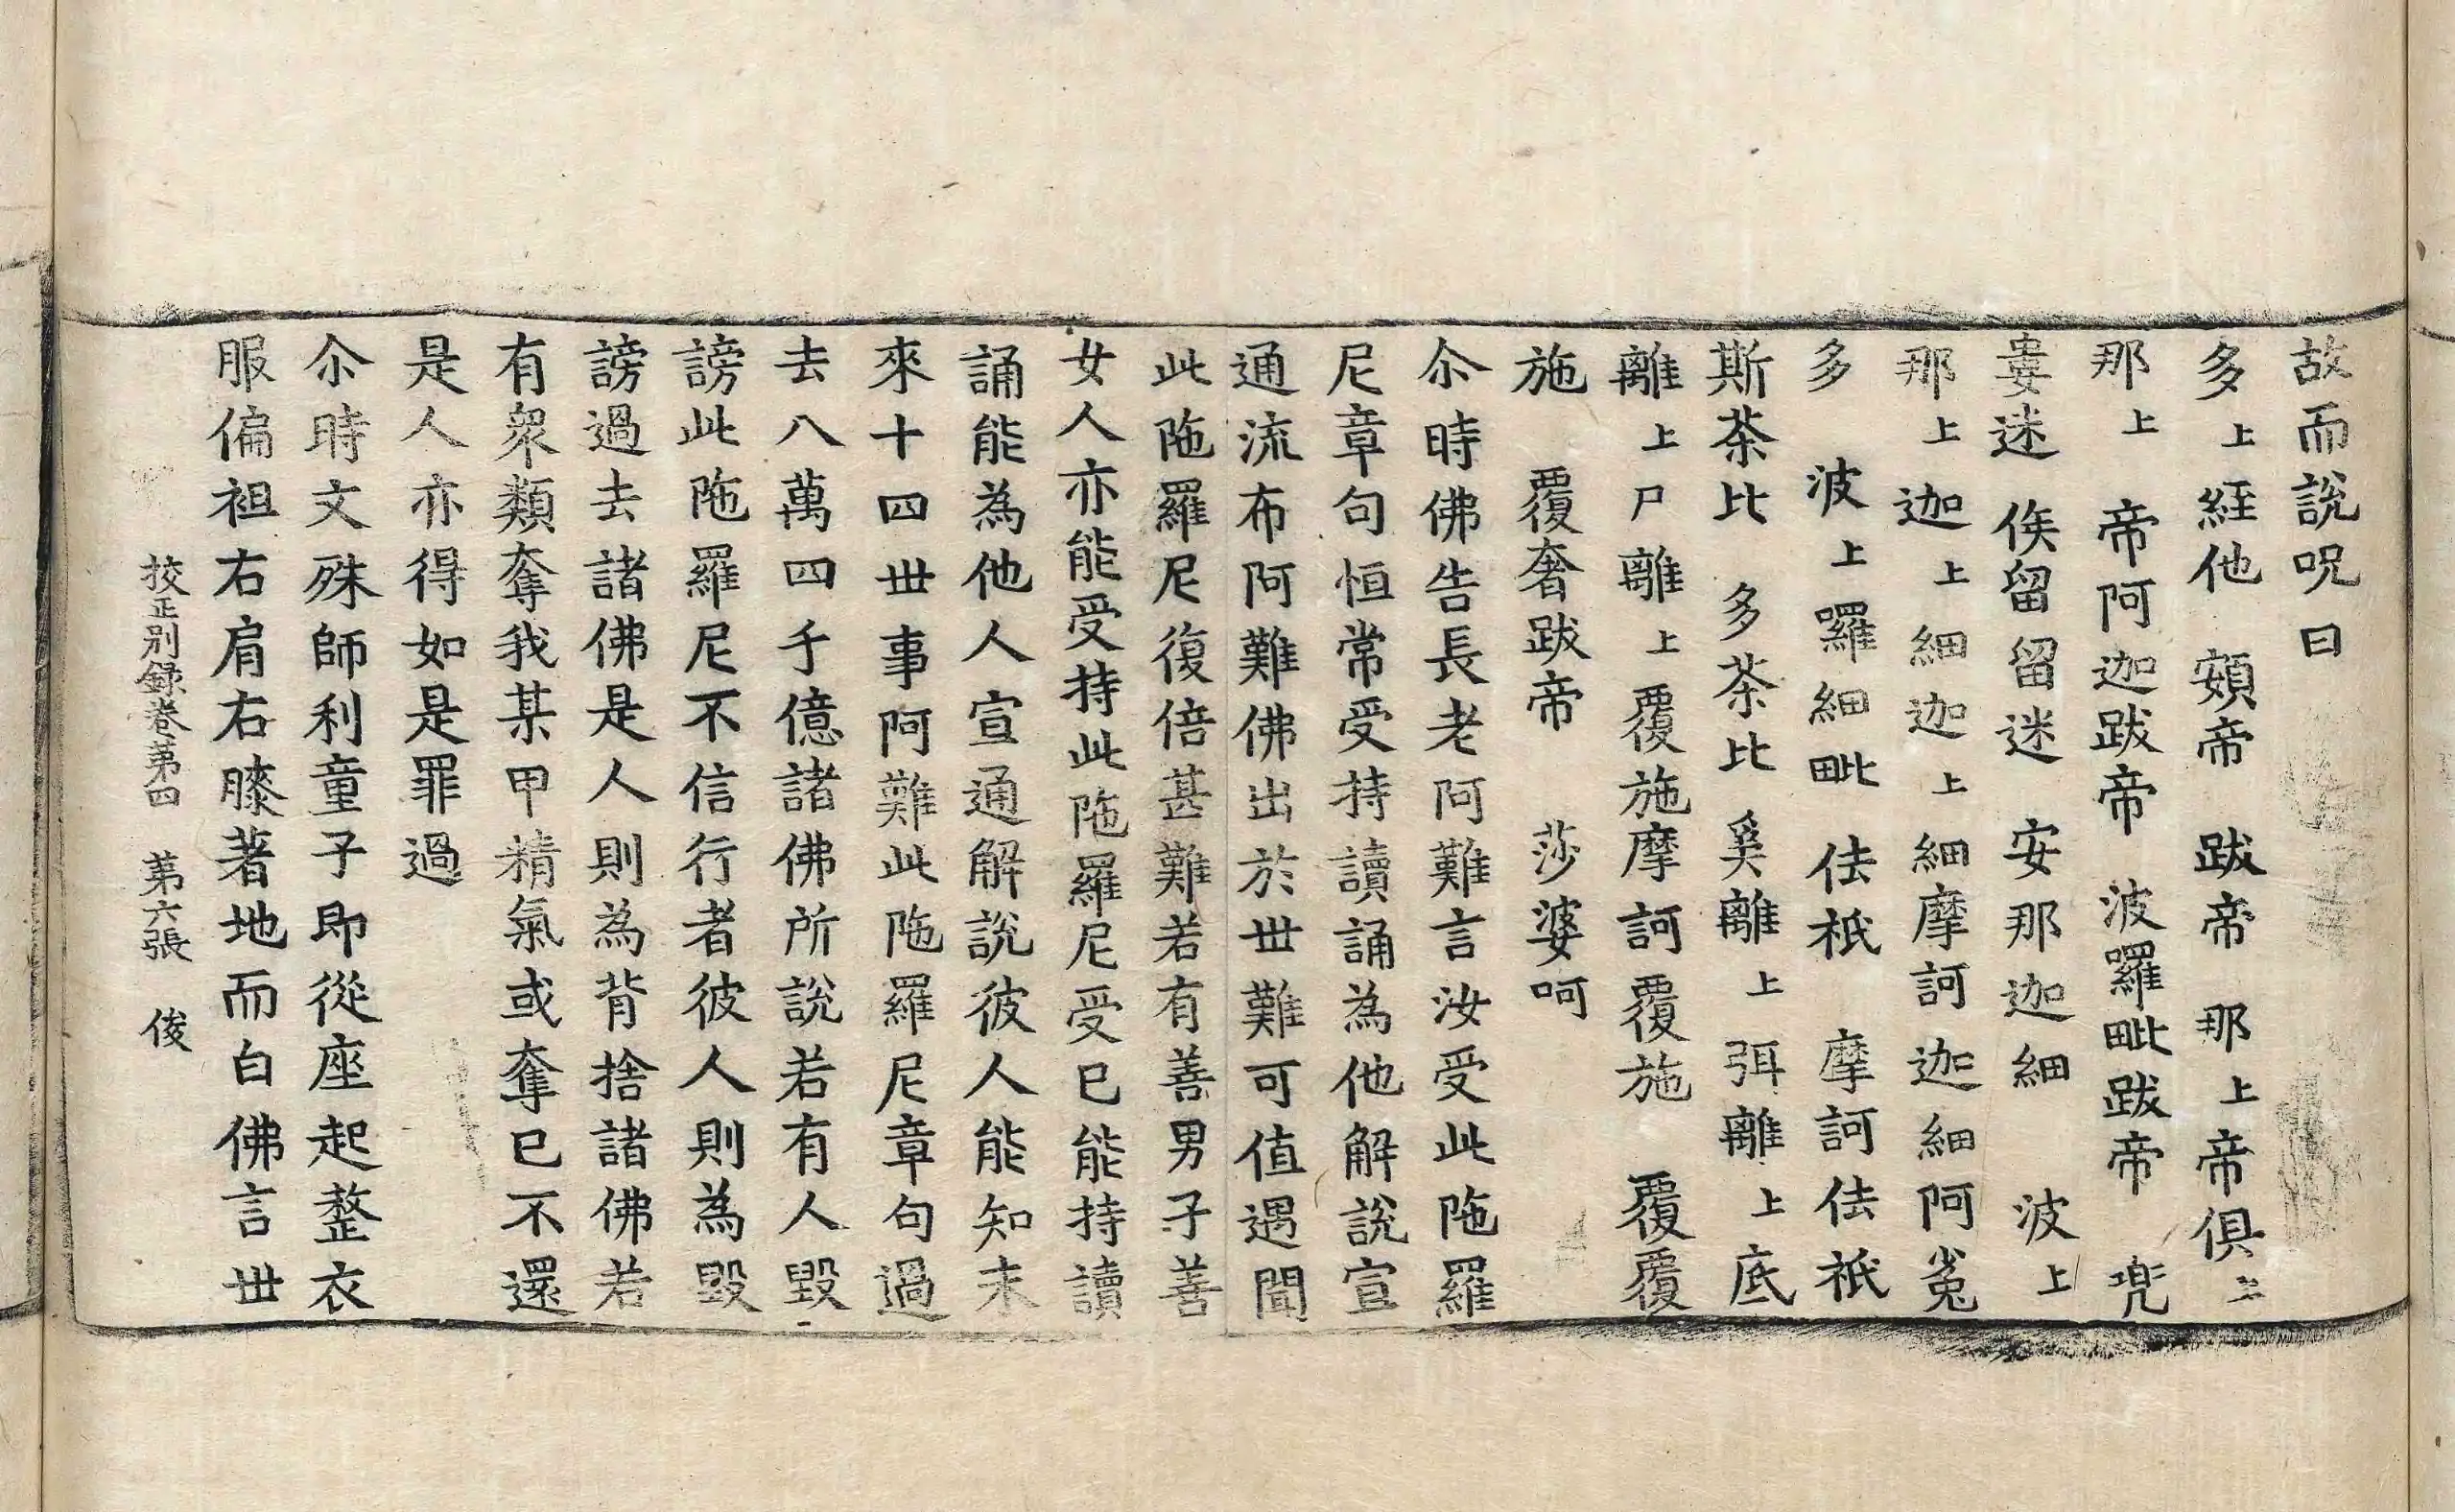 故而說呪曰
多上絰他　頞帝　跋帝　那上帝俱
那上　帝阿迦跋帝　波囉毗跋帝　兜
婁迷　俟留留迷　安那迦細　波上
那上迦上細迦上細摩訶迦細阿㝹
多　波上囉細毗　佉袛　摩訶佉袛
斯荼比　多荼比　奚離上弭離上底
離上尸離上覆施摩訶覆施　覆覆
施　覆奢跋帝　莎婆呵
尒時佛告長老阿難言汝受此陁羅
尼章句恒常受持讀誦為他解說宣
通流布阿難佛出於世難可值遇聞
此陁羅尼復倍甚難若有善男子善
女人亦能受持此陁羅尼受已能持讀
誦能為他人宣通解說彼人能知未
來十四世事阿難此陁羅尼章句過
去八萬四千億諸佛所說若有人毀
謗此陁羅尼不信行者彼人則為毀
謗過去諸佛是人則為背捨諸佛若
有衆類奪我某甲精氣或奪已不還
是人亦得如是罪過
尒時文殊師利童子即從座起整衣
服偏袒右肩右膝著地而白佛言世
挍正別録卷第四　第六張　俊